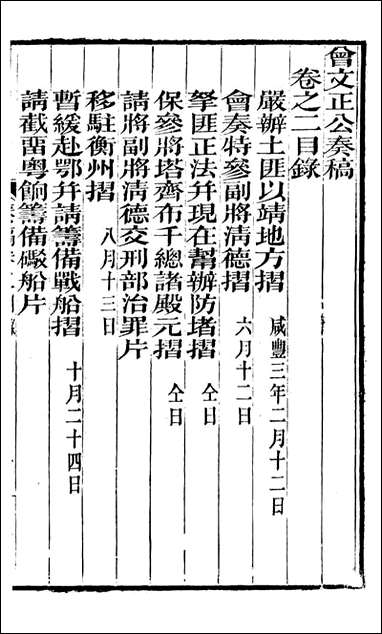 曾文正公奏稿
卷之二目錄
嚴辦土匪以靖地方摺 咸豐三年二月十二日
會奏特參副將清德摺 六月十二日
拏匪正法并現在幫辦防堵摺 仝日
保參將塔齊布千總諸殿元摺 仝日
請將副將清德交刑部治罪片
移駐衡州摺 八月十三日
暫緩赴鄂并請籌備戰船摺 十月二十四日
請截留粵餉籌備礮船片